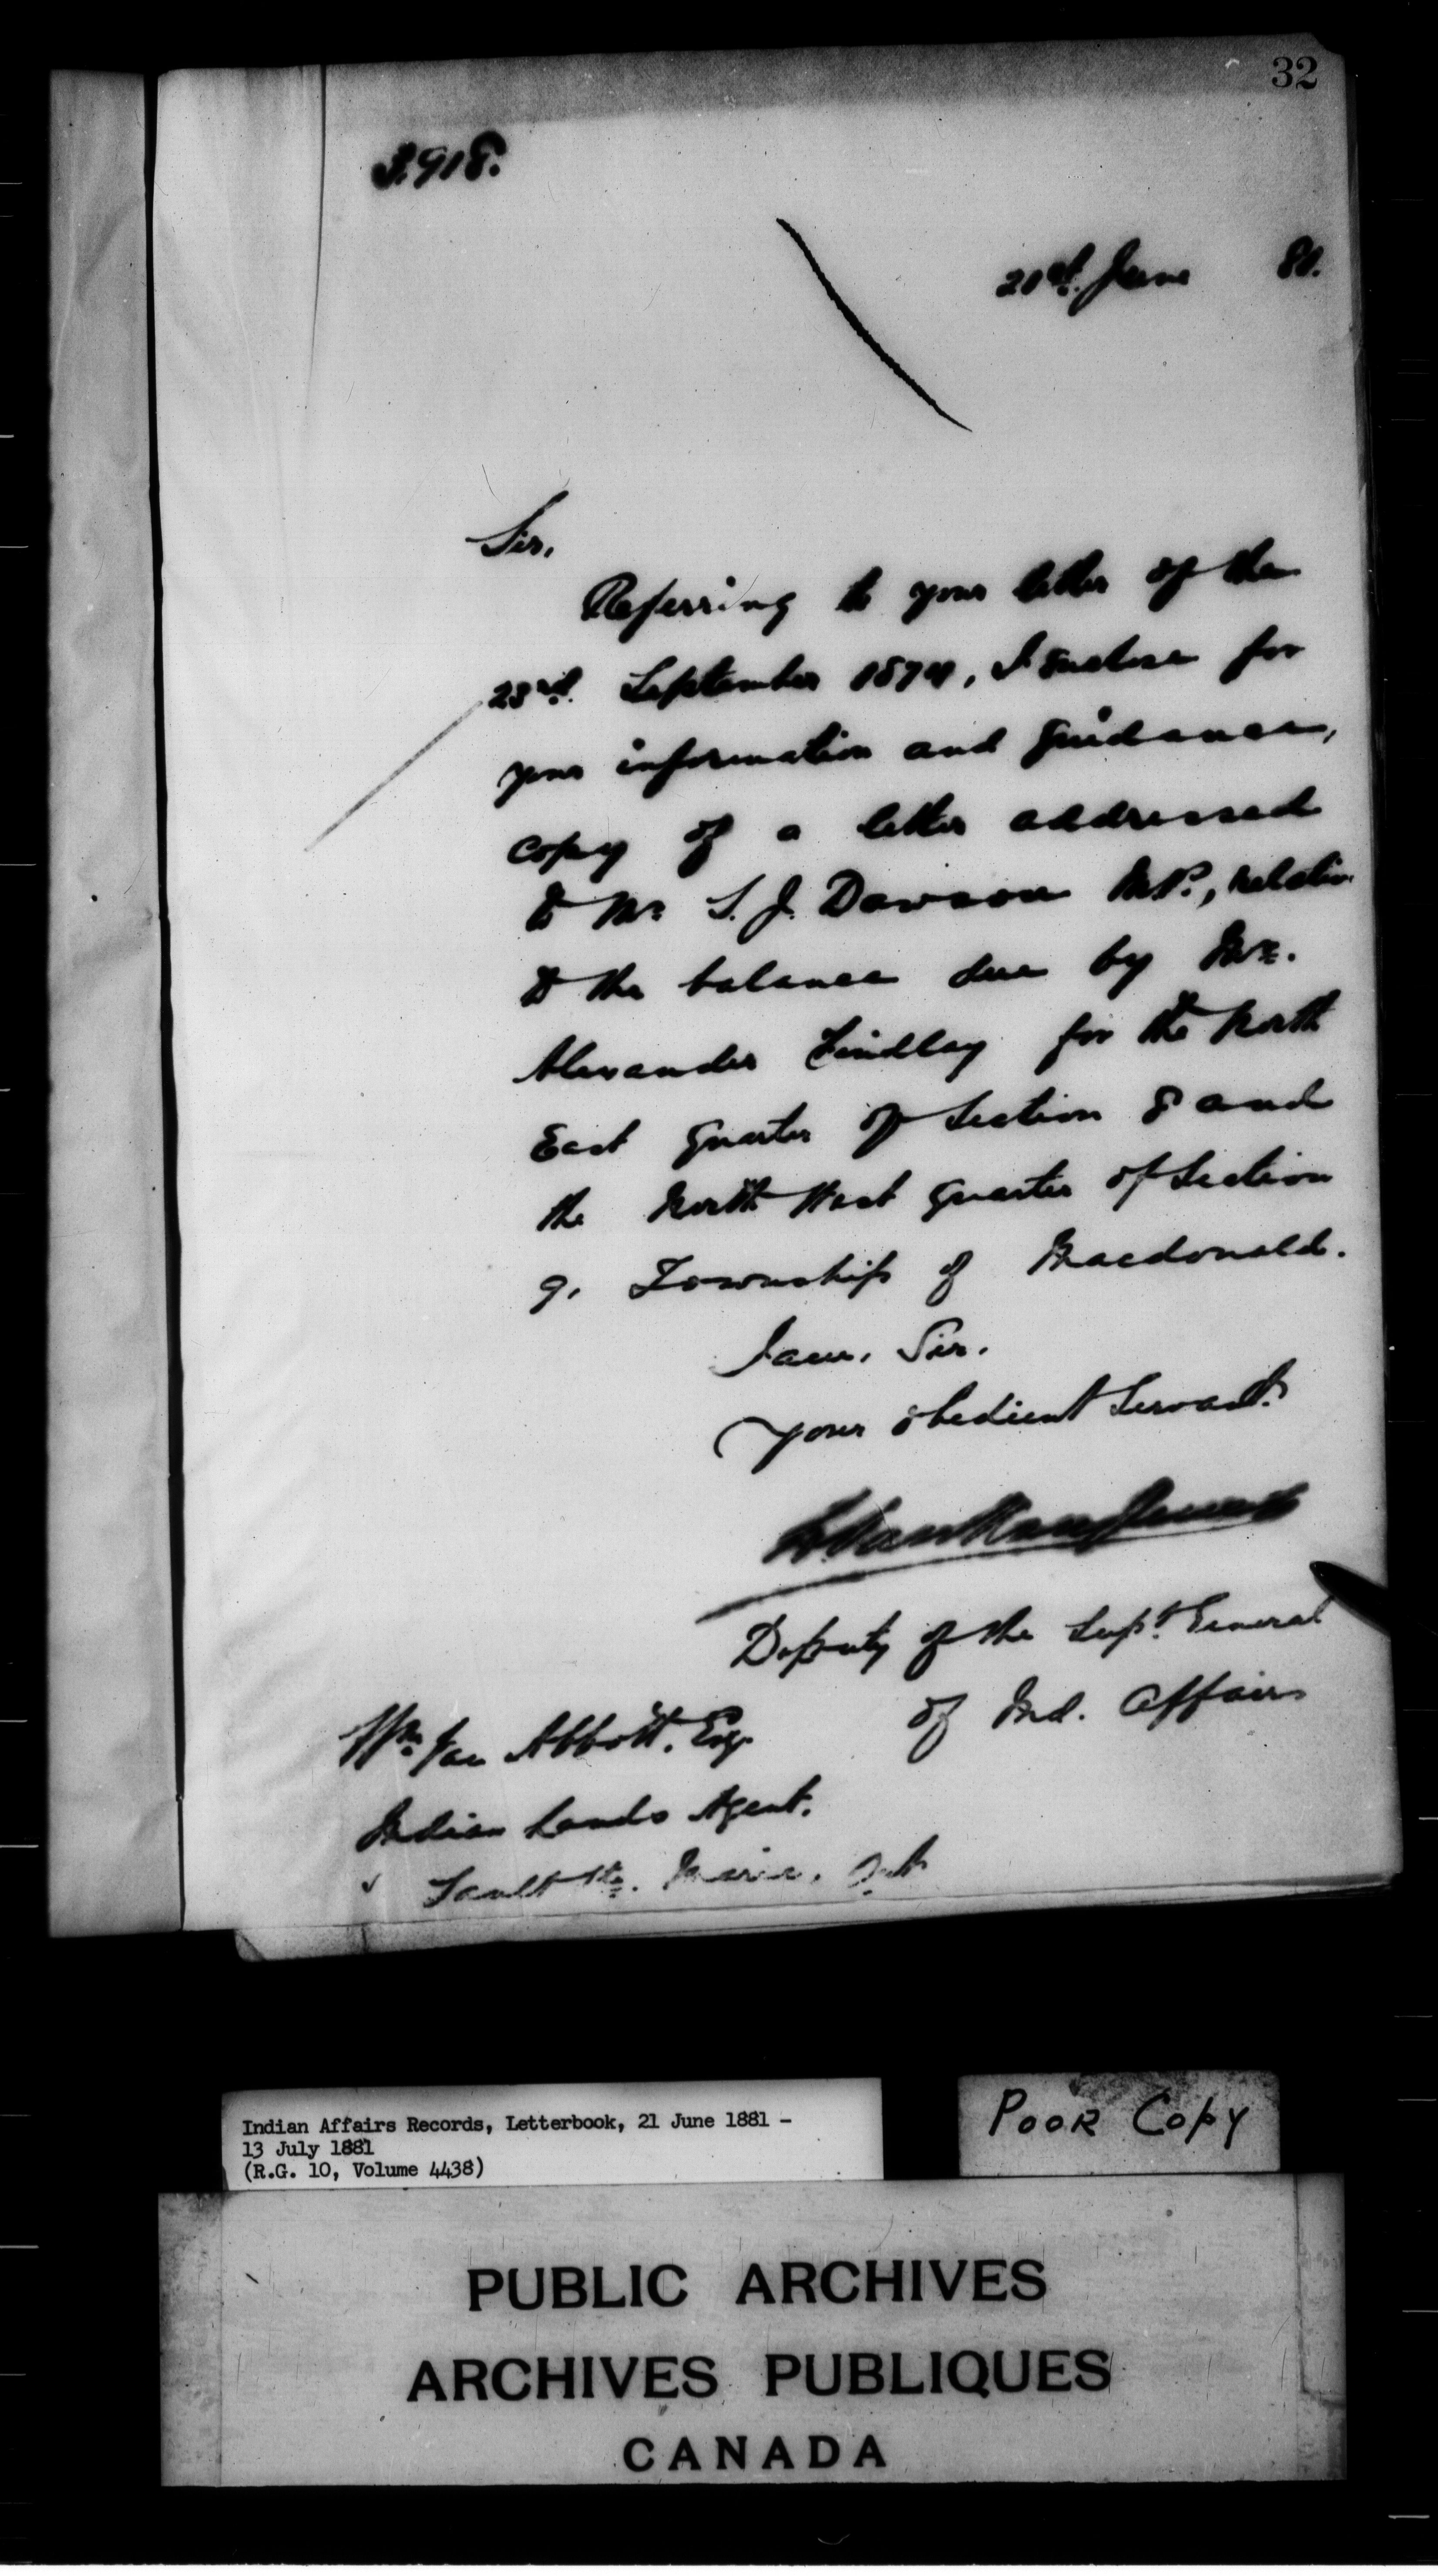 32
3.918.
21st. June 81.
Sir,
Referring to your letter of the
23rd. September 1879, I enclose for
your information and guidance,
copy of a letter addressed
to Mr. S. J. Dawson M.P., relative
to the balance due by Mr.
Alexander Findlay for the North
East quarter of Section 8 and
the North West quarter of Section
9, Township of Macdonald.
I am, Sir,
Your obedient Servant.
L. VanKoughnet
Deputy of the Supt. General
of Ind. Affairs
Wm. Van Abbott, Esq.
Indian Lands Agent,
Sault Ste. Marie, Ont
Indian Affairs Records, Letterbook, 21 June 1881 -
13 July 1881
(R.G. 10, Volume 4438)
POOR COPY
PUBLIC ARCHIVES
ARCHIVES PUBLIQUES
CANADA